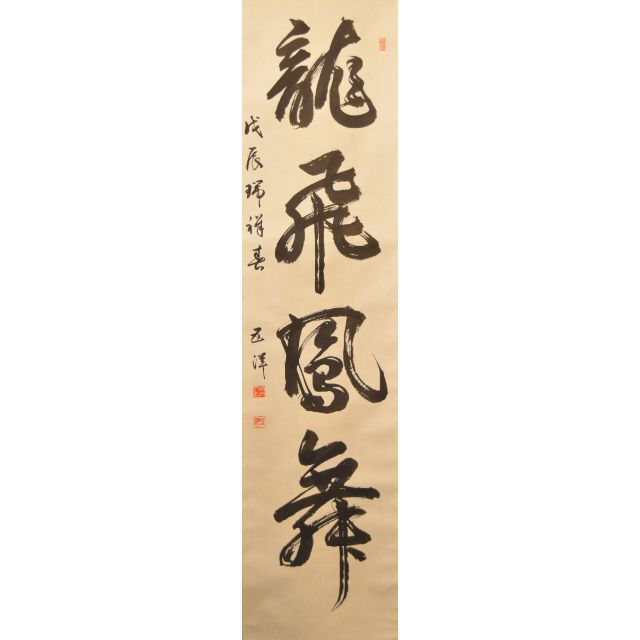 龍飛鳳舞
戊辰瑞祥春
五洋